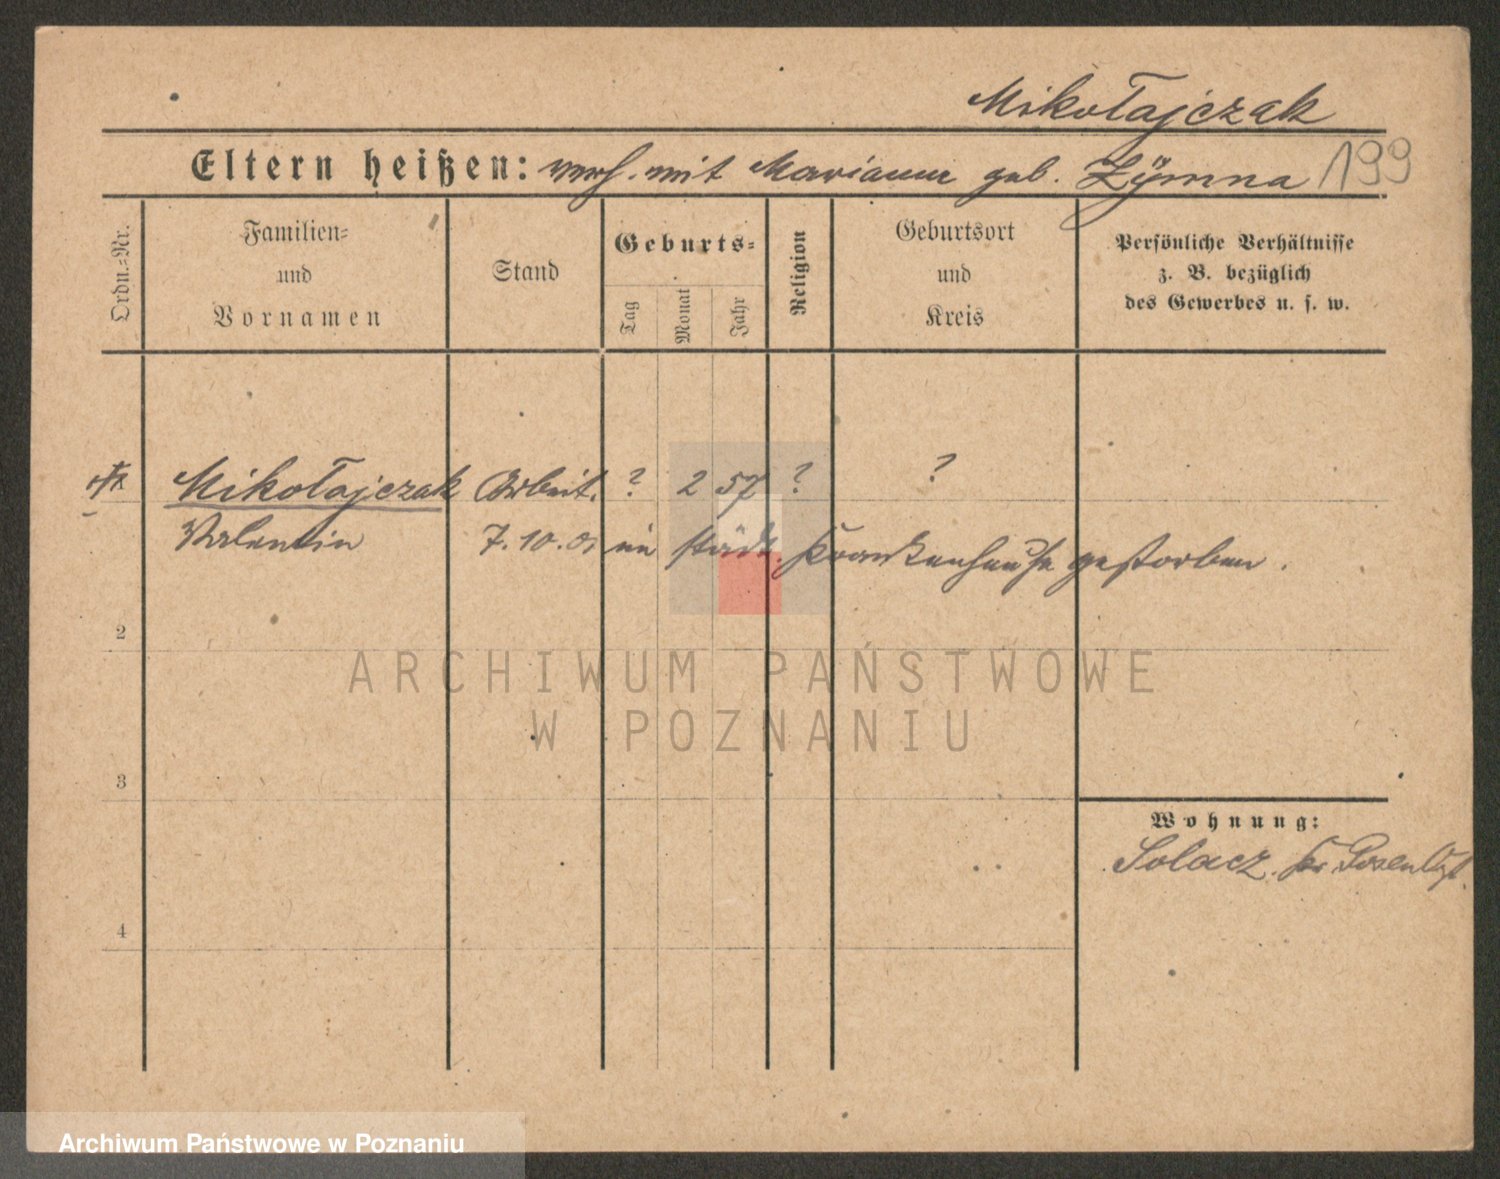 Mikołajczak
Eltern heißen: verh. mit Marianne geb. Zÿmna 199
Ordn.-Nr.
Familien-
und
Vornamen
Stand
Geburts-
Tag
Monat
Jahr
Religion
Geburtsort
und
Kreis
Persönliche Verhältnisse
z. B. bezüglich
des Gewerbes u. s. w.
Mikołajczak Arbeit. ? 2 57 ? ?
Valentin 7.10.01 im städt. Krankenhause gestorben.
2
3
4
Wohnung:
Solacz. Kr. Posen
ARCHIWUM PAŃSTWOWE
W POZNANIU
Archiwum Państwowe w Poznaniu